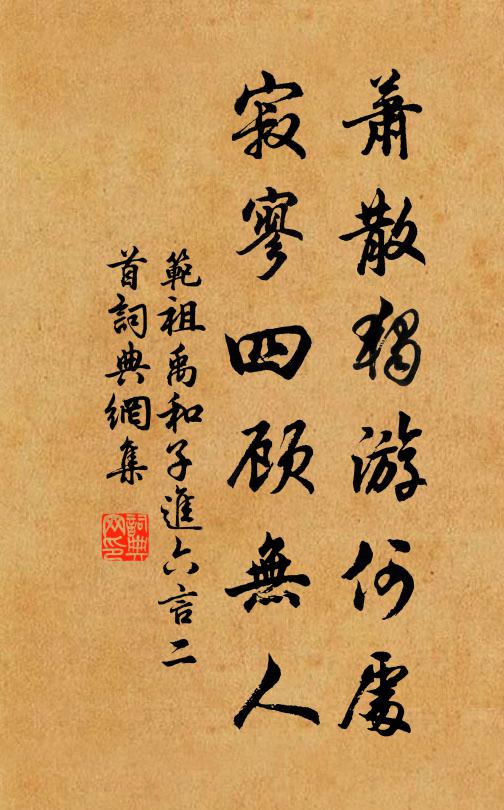 蕭散獨游何處
寂寥四顧無人
範祖禹和子進六言二
首詞典網集
詞典
网印